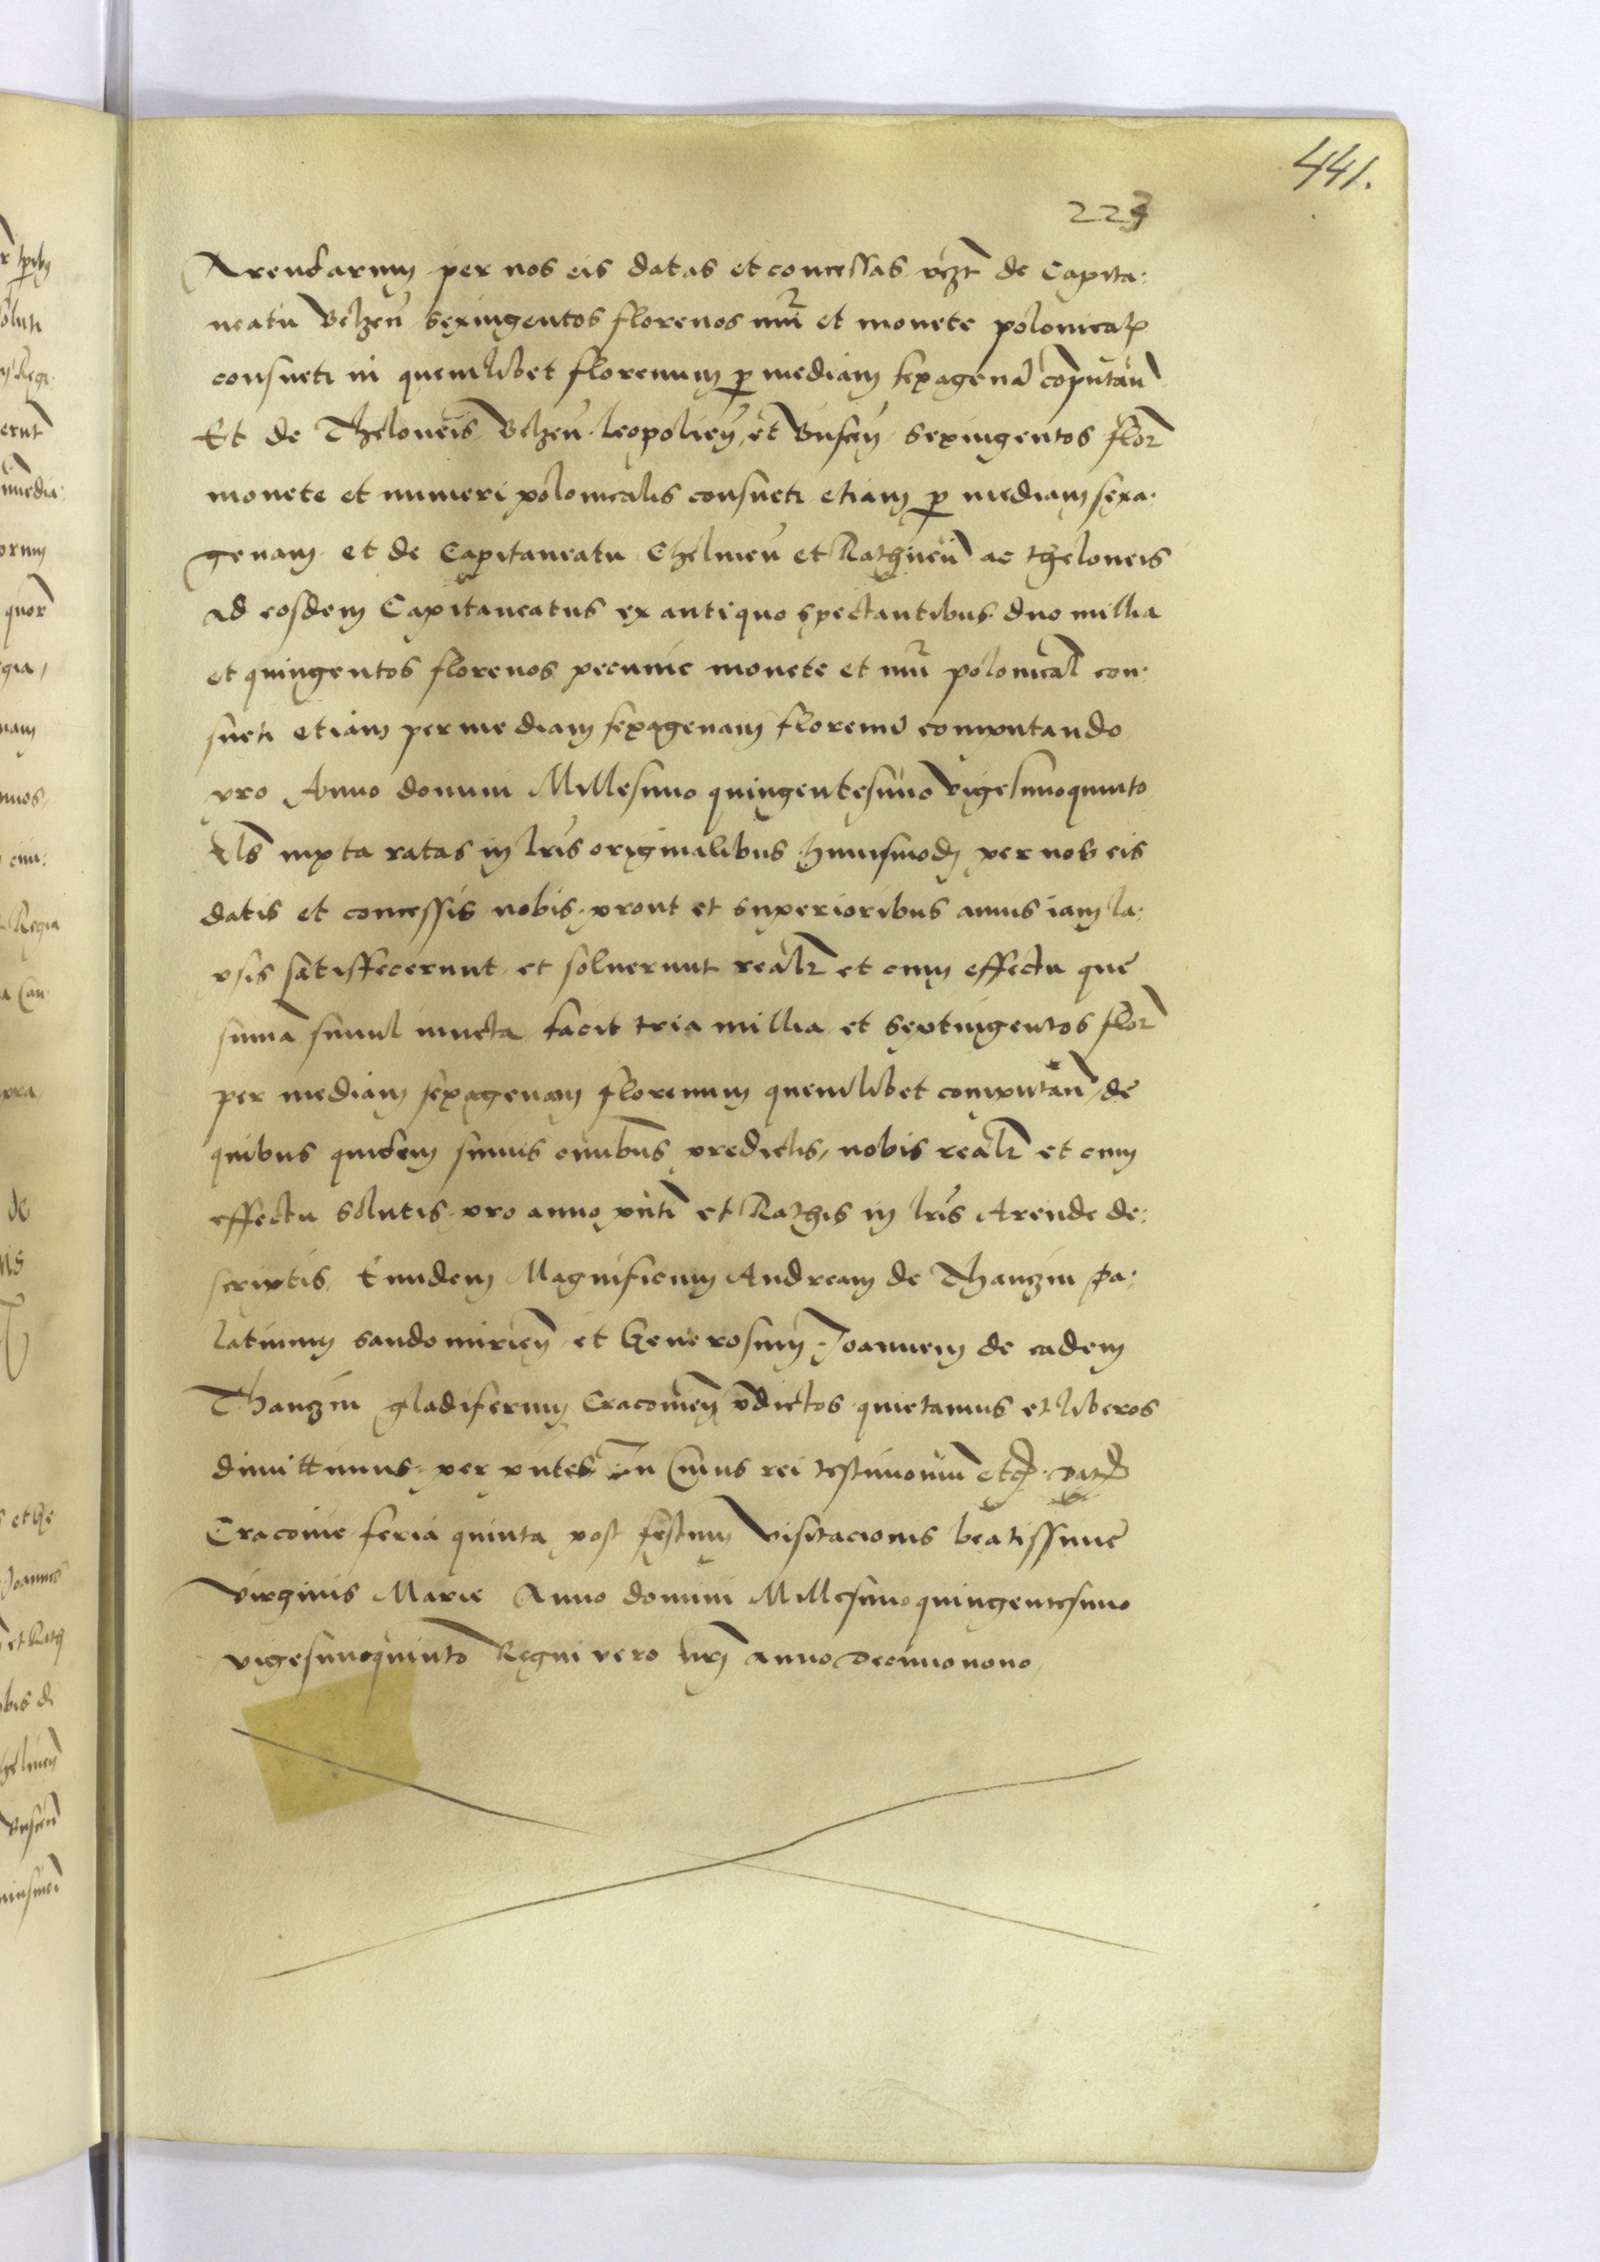 441.
223
Arendarum per nos eis datas et concessas vczt de Capita:
neatu Belzen̄ sexingentos florenos nūi et monete polonical
consueti in quemlibet florenum p mediam sexagenā computan̄
Et de Theloneis Belzen̄ leopolien̄ et Buscen̄ sexingentos flor̄
monete et numeri polonicalis consueti etiam p mediam sexa:
genam et de Capitaneatu Chelmen̄ et Rathnen̄ ac theloneis
ad eosdem Capitaneatus ex antiquo spectantibus duo millia
et quingentos florenos pecunie monete et nūi polonical con:
sueti etiam per mediam sexagenam florenū computando
pro Anno domini Millesimo quingentesimo vigesimoquinto
iuxta ratas in lris originalibus huiusmodj per nos eis
datis et concessis nobis prout et superioribus annis iam la:
psis satisfecerunt et soluerunt realr et cum effectu que
sum̄a simul iuncta facit tria millia et septingentos flor̄
per mediam sexagenam florenum quemlibet computan̄ de
quibus quidem sum̄is om̄ibus predictis nobis realr et cum
effectu solutis pro anno pn̄ti et Rathis in lris Arende de:
scriptis Eundem Magnificum Andream de Thanczin pa:
latinum sandomirien̄ et Generosum Joannem de eadem
Thanczin gladiferum Cracouien̄ p̄dictos quietamus et liberos
dimittimus per pn̄tes In Cuius rei testimonium etc. Dat
Cracouie feria quinta post festum visitacionis beatissime
virginis Marie Anno domini Millesimo quingentesimo
vigesimoquinto Regni vero nr̄i anno decimonono